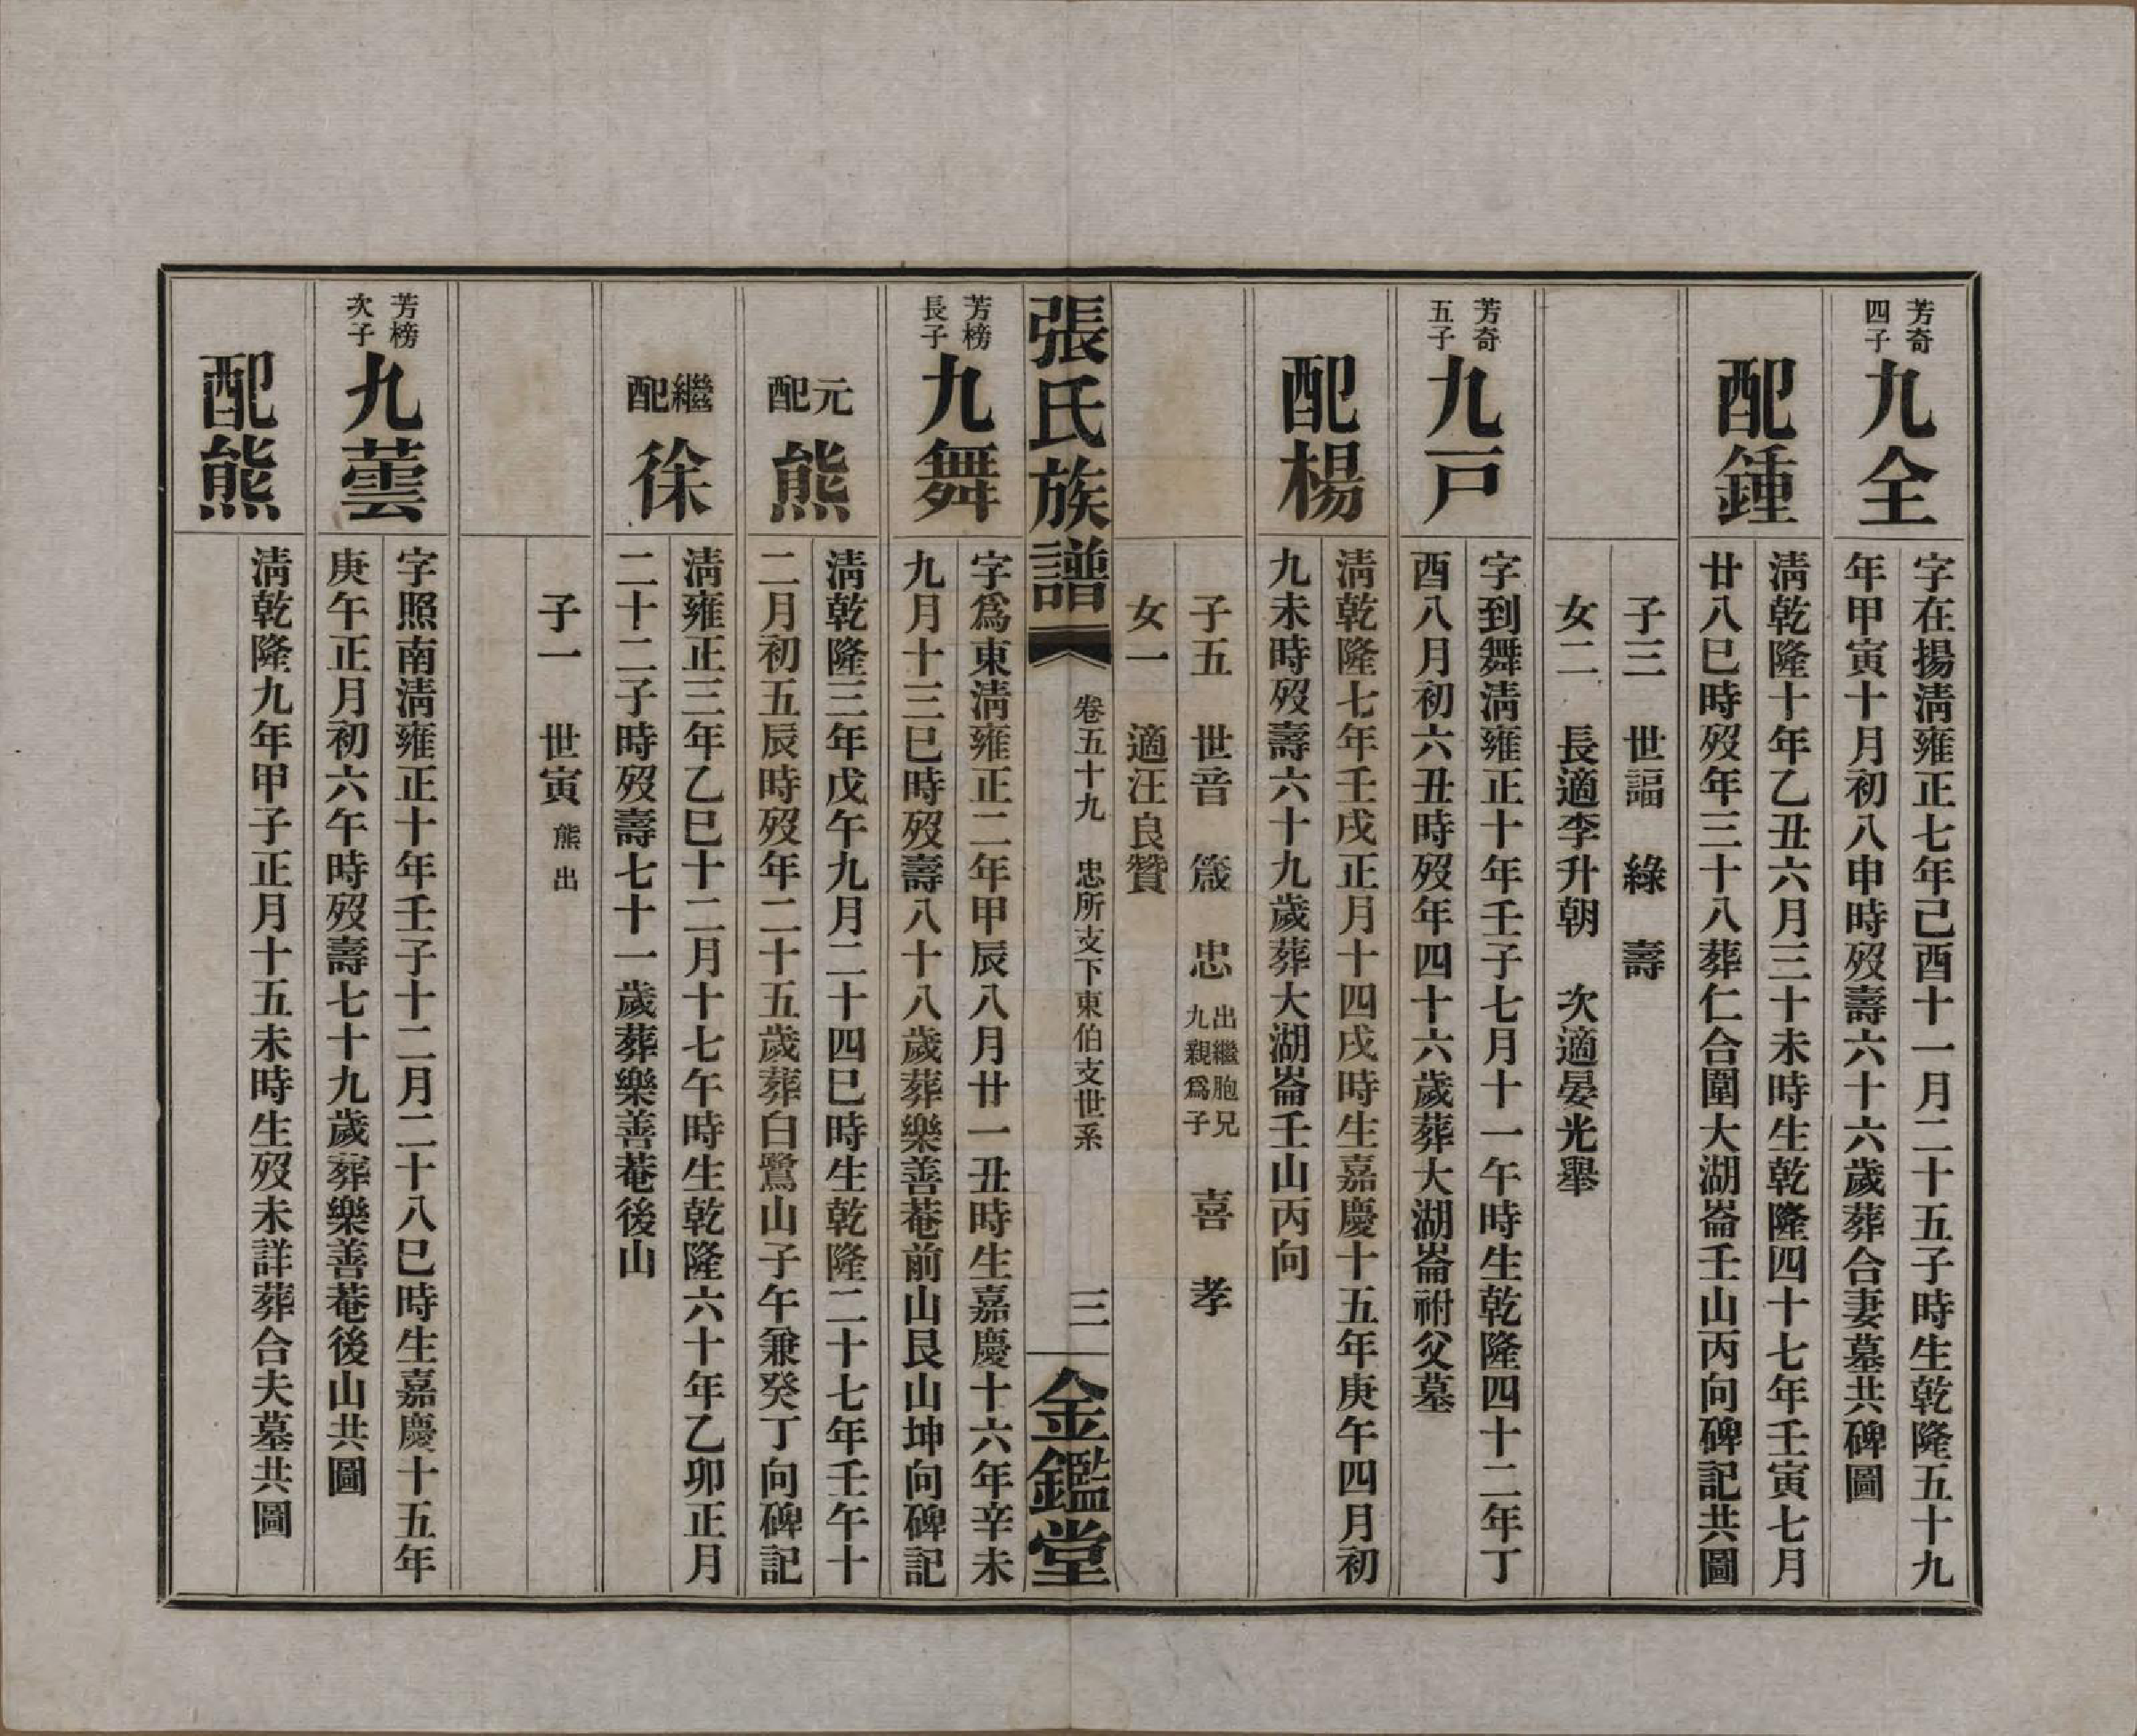 芳奇
四子
九全
字在揚淸雍正七年己酉十一月二十五子時生乾隆五十九
年甲寅十月初八申時歿壽六十六歲葬合妻墓共碑圖
配鍾
淸乾隆十年乙丑六月三十未時生乾隆四十七年壬寅七月
廿八巳時歿年三十八葬仁合圍大湖崙壬山丙向碑記共圖
子三 世諨 綠 壽
女二 長適李升朝 次適晏光舉
芳奇
五子
九戸
字到舞淸雍正十年壬子七月十一午時生乾隆四十二年丁
酉八月初六丑時歿年四十六歲葬大湖崙祔父墓
配楊
淸乾隆七年壬戌正月十四戌時生嘉慶十五年庚午四月初
九未時歿壽六十九歲葬大湖崙壬山丙向
子五 世音 箴 忠 出繼胞兄九親爲子 喜 孝
女一 適汪良贊
張氏族譜 卷五十九 忠所支下東伯支世系 三 金鑑堂
芳榜
長子
九舞
字爲東淸雍正二年甲辰八月廿一丑時生嘉慶十六年辛未
九月十三巳時歿壽八十八歲葬樂善菴前山艮山坤向碑記
元配
熊
淸乾隆三年戊午九月二十四巳時生乾隆二十七年壬午十
二月初五辰時歿年二十五歲葬白鷺山子午兼癸丁向碑記
繼配
徐
淸雍正三年乙巳十二月十七午時生乾隆六十年乙卯正月
二十二子時歿壽七十一歲葬樂善菴後山
子一 世寅 熊出
芳榜
次子
九蕓
字照南淸雍正十年壬子十二月二十八巳時生嘉慶十五年
庚午正月初六午時歿壽七十九歲葬樂善菴後山共圖
配熊
淸乾隆九年甲子正月十五未時生歿未詳葬合夫墓共圖